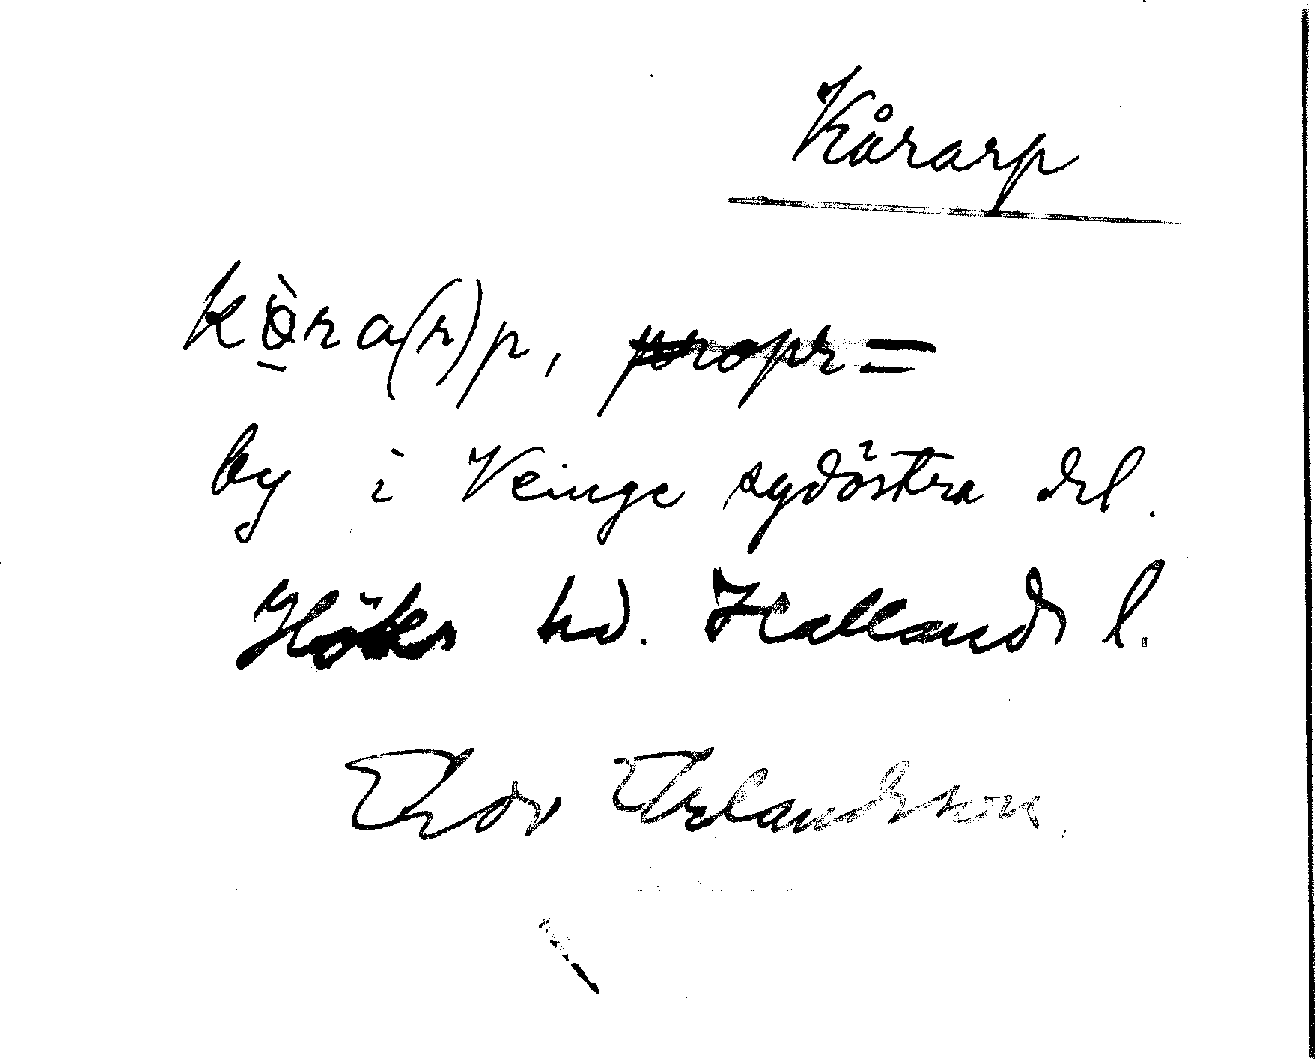 Kårarp
kò̱ra(r)p, propr =
by i Veinge sydöstra del.
Höks hd. Hallands l.
Thor Erlandsson.